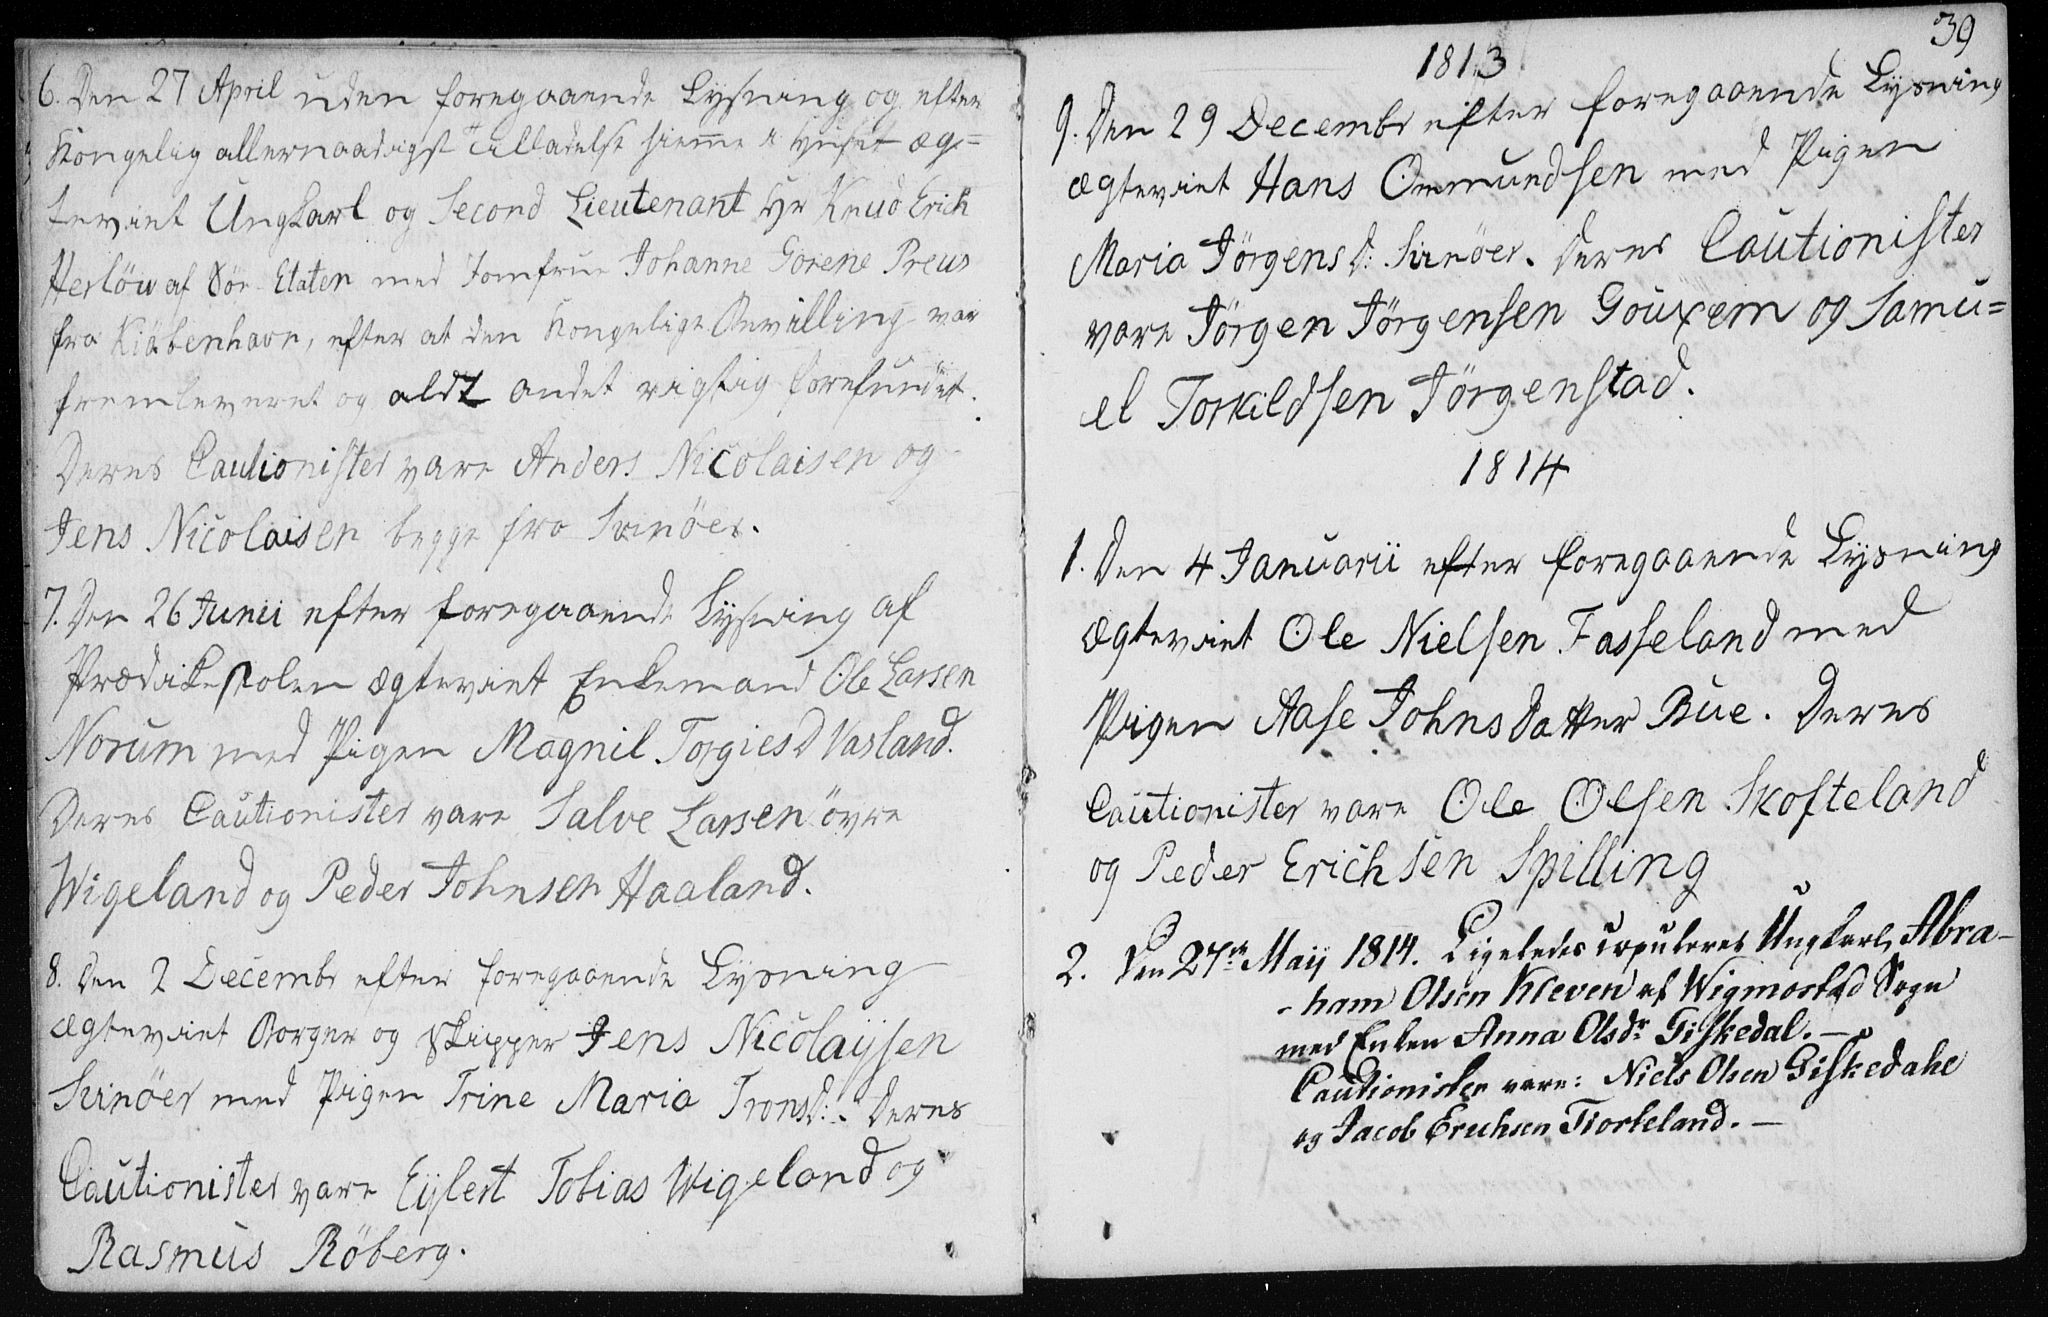 6. Den 27 April uden foregaaende Lysning og efter
Kongelig allernaadigst Tilladelse hiemme i Huset æg=
teviet Ungkarl og Second Lieutenant Hr Knud Erich
Herlöw af Söe-Etaten med Jomfrue Johanne Gorene Preus
fra Kiöbenhavn, efter at den Kongelige Bevilling var
fremleveret og aldt andet rigtig forefundet.
Deres Cautionister vare Anders Nicolaisen og
Jens Nicolaisen begge fra Svinöer.
7. Den 26 Junii efter foregaaende Lysning af
Prædikestolen ægteviet Enkemand Ole Larsen
Norum med Pigen Magnil Torgiesd Vasland.
Deres Cautionister vare Salve Larsen övre
Wigeland og Peder Johnsen Haaland.
8. Den 2 Decembr efter foregaaende Lysning
ægteviet Borger og Skipper Jens Nicolaysen
Svinöer med Pigen Trine Maria Tronsd:. Deres
Cautionister vare Eylert Tobias Wigeland og
Rasmus Röberg.
39
1813
9. Den 29 Decembr efter foregaaende Lysning
ægteviet Hans Ommundsen med Pigen
Maria Jörgensd: Svinöer. Deres Cautionister
vare Jörgen Jörgensen Gouxem og Samu=
el Torkildsen Jörgenstad.
1814
1. Den 4 Januarii efter foregaaende Lysning
ægteviet Ole Nielsen Fasseland med
Pigen Aase Johnsdatter Bue. Deres
Cautionister vare Ole Olsen Skofteland
og Peder Erichsen Spilling
2. Den 27de Maij 1814. Ligeledes copuleret Ungkarl Abra-
-ham Olsen Kleven af Wigmostad Sogn
med Enken Anna Olsdr Giskedal.—
Cautionister vare: Niels Olsen Giskedahl
og Jacob Erichsen Tiorteland.—